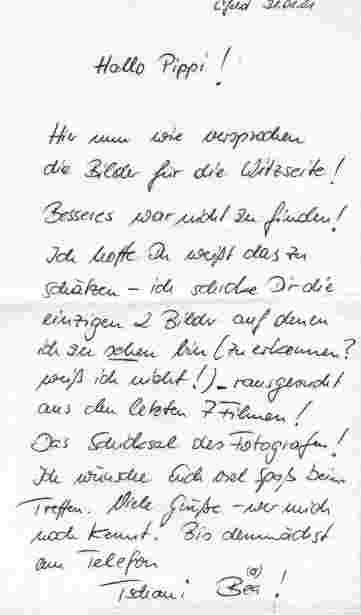 31.01.01
Hallo Pippi!
Hier nun wie versprochen
die Bilder für die Witzseite!
Besseres war nicht zu finden!
Ich hoffe Du weißt das zu
schätzen – ich schicke Dir die
einzigen 2 Bilder auf denen
ich zu sehen bin (zu erkennen?
weiß ich nicht!) – rausgesucht
aus den letzten 7 Filmen!
Das Schicksal des Fotografen!
Ich wünsche Euch viel Spaß beim
Treffen. Viele Grüße – wer mich
noch kennt. Bis demnächst
am Telefon
Tschani Bea (a)!